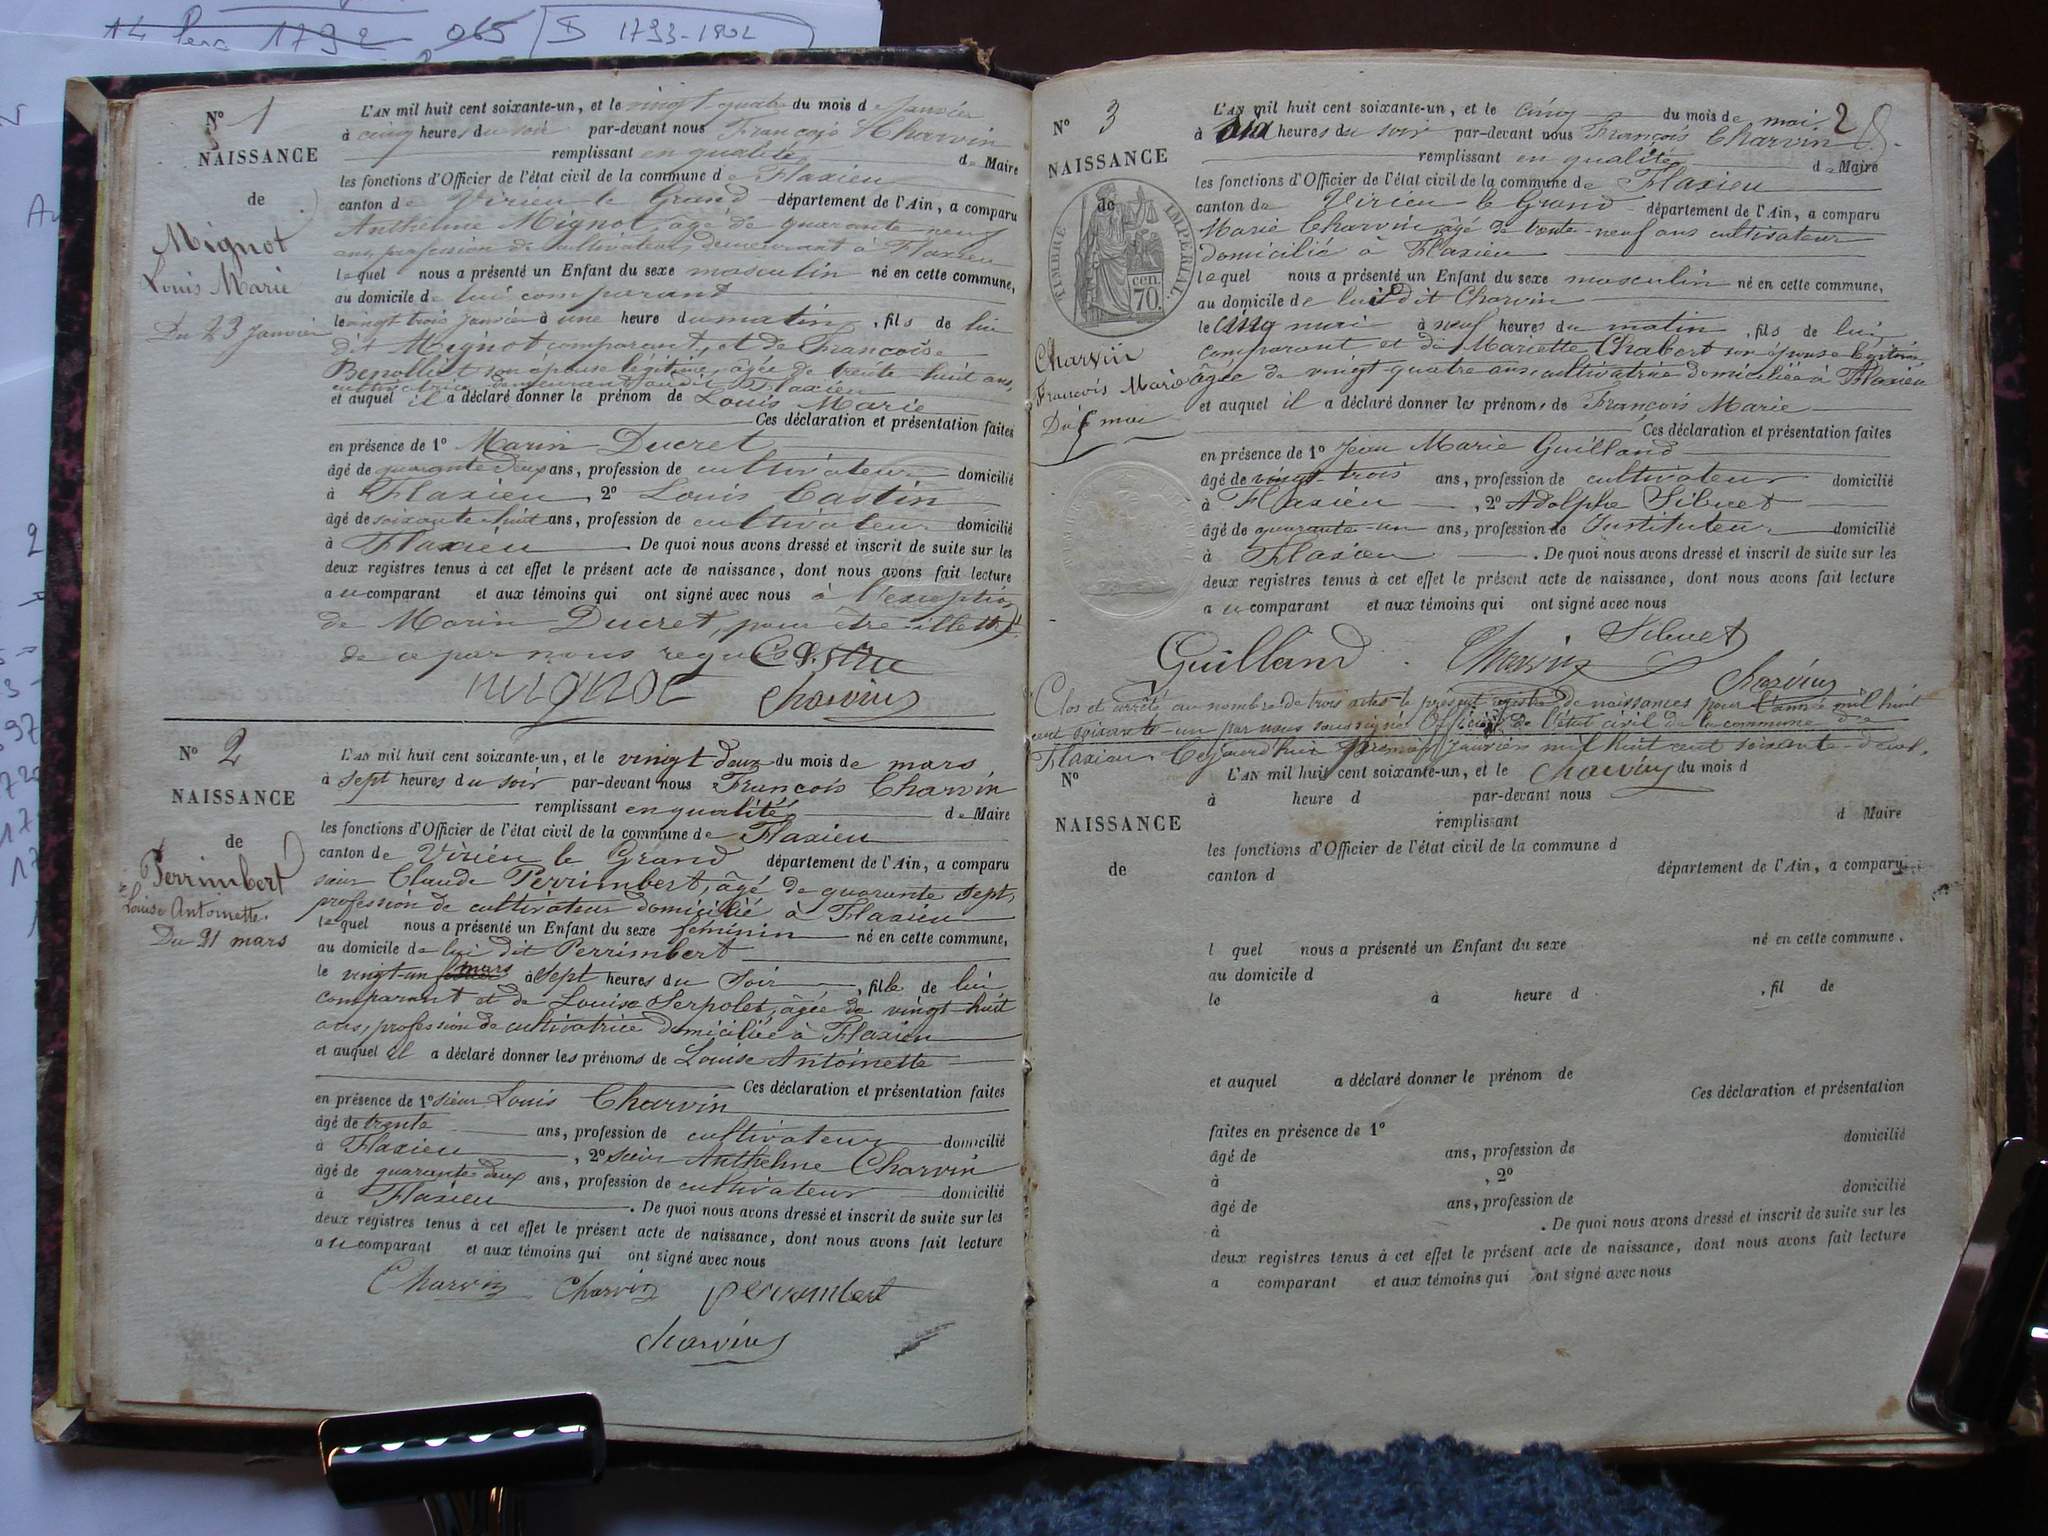 14 Pera 1792 065 D 1793-1802
N° 1
NAISSANCE
de
Mignot
Louis Marie
Du 23 Janvier
L'AN mil huit cent soixante-un, et le vingt quatre du mois de Janvier
à cinq heures du soir par-devant nous François Charvin
remplissant en qualité de Maire
les fonctions d'Officier de l'état civil de la commune de Flaxieu
canton de Virieu le Grand département de l'Ain, a comparu
Anthelme Mignot, âgé de quarante neuf
ans, profession de cultivateur, demeurant à Flaxieu
lequel nous a présenté un Enfant du sexe masculin né en cette commune,
au domicile de lui comparant
le vingt trois Janvier à une heure du matin, fils de lui
dit Mignot comparant, et de Françoise
Benollet son épouse légitime, âgée de trente-huit ans,
cultivatrice demeurant audit Flaxieu
et auquel il a déclaré donner le prénom de Louis Marie
Ces déclaration et présentation faites
en présence de 1° Marin Ducret
âgé de quarante deux ans, profession de cultivateur domicilié
à Flaxieu, 2° Louis Castin
âgé de soixante huit ans, profession de cultivateur domicilié
à Flaxieu. De quoi nous avons dressé et inscrit de suite sur les
deux registres tenus à cet effet le présent acte de naissance, dont nous avons fait lecture
au comparant et aux témoins qui ont signé avec nous à l'exception
de Marin Ducret, pour être illettré
de ce par nous requis. Castin
mignot Charvin
N° 2
NAISSANCE
de
Perrimbert
Louise Antoinette.
Du 21 mars
L'AN mil huit cent soixante-un, et le vingt deux du mois de mars
à sept heures du soir par-devant nous François Charvin
remplissant en qualité de Maire
les fonctions d'Officier de l'état civil de la commune de Flaxieu
canton de Virieu le Grand département de l'Ain, a comparu
sieur Claude Perrimbert, âgé de quarante sept,
profession de cultivateur domicilié à Flaxieu
lequel nous a présenté un Enfant du sexe féminin né en cette commune,
au domicile de lui dit Perrimbert
le vingt-un mars à sept heures du soir, fille de lui
comparant et de Louise Serpolet, âgée de vingt-huit
ans, profession de cultivatrice domiciliée à Flaxieu
et auquel il a déclaré donner les prénoms de Louise Antoinette
Ces déclaration et présentation faites
en présence de 1° sieur Louis Charvin
âgé de trente ans, profession de cultivateur domicilié
à Flaxieu, 2° sieur Anthelme Charvin
âgé de quarante deux ans, profession de cultivateur domicilié
à Flaxieu. De quoi nous avons dressé et inscrit de suite sur les
deux registres tenus à cet effet le présent acte de naissance, dont nous avons fait lecture
au comparant et aux témoins qui ont signé avec nous
Charvin Charvin perrimbert
Charvin
2
N° 3
NAISSANCE
de
TIMBRE IMPÉRIAL.
70 cen.
Charvin
François Marie
Du 5 mai
L'AN mil huit cent soixante-un, et le cinq du mois de mai
à heures du soir par-devant nous François Charvin
remplissant en qualité de Maire
les fonctions d'Officier de l'état civil de la commune de Flaxieu
canton de Virieu le Grand département de l'Ain, a comparu
Marie Charvin, âgé de trente-neuf ans cultivateur
domicilié à Flaxieu
lequel nous a présenté un Enfant du sexe masculin né en cette commune,
au domicile de lui dit Charvin
le cinq mai à neuf heures du matin, fils de lui
comparant et de Mariette Chabert son épouse légitime
âgée de vingt-quatre ans cultivatrice domiciliée à Flaxieu
et auquel il a déclaré donner les prénoms de François Marie
Ces déclaration et présentation faites
en présence de 1° Jean Marie Guilland
âgé de vingt-trois ans, profession de cultivateur domicilié
à Flaxieu, 2° Adolphe Sibuet
âgé de quarante-un ans, profession de Instituteur domicilié
à Flaxieu. De quoi nous avons dressé et inscrit de suite sur les
deux registres tenus à cet effet le présent acte de naissance, dont nous avons fait lecture
au comparant et aux témoins qui ont signé avec nous
Guilland Charvin Sibuet
Charvin
Clos et arrêté au nombre de trois actes le présent registre de naissances pour l'année mil huit
cent soixante-un par nous soussigné Officier de l'état civil de la commune de
Flaxieu. Cejourd'hui premier Janvier mil huit cent soixante-deux.
Charvin
N°
NAISSANCE
de
L'AN mil huit cent soixante-un, et le du mois d
à heure d par-devant nous
remplissant d Maire
les fonctions d'Officier de l'état civil de la commune d
canton d département de l'Ain, a comparu
l quel nous a présenté un Enfant du sexe né en cette commune.
au domicile d
le à heure d , fil de
et auquel a déclaré donner le prénom de
Ces déclaration et présentation
faites en présence de 1°
âgé de ans, profession de domicilié
à , 2°
âgé de ans, profession de domicilié
à . De quoi nous avons dressé et inscrit de suite sur les
deux registres tenus à cet effet le présent acte de naissance, dont nous avons fait lecture
a comparant et aux témoins qui ont signé avec nous